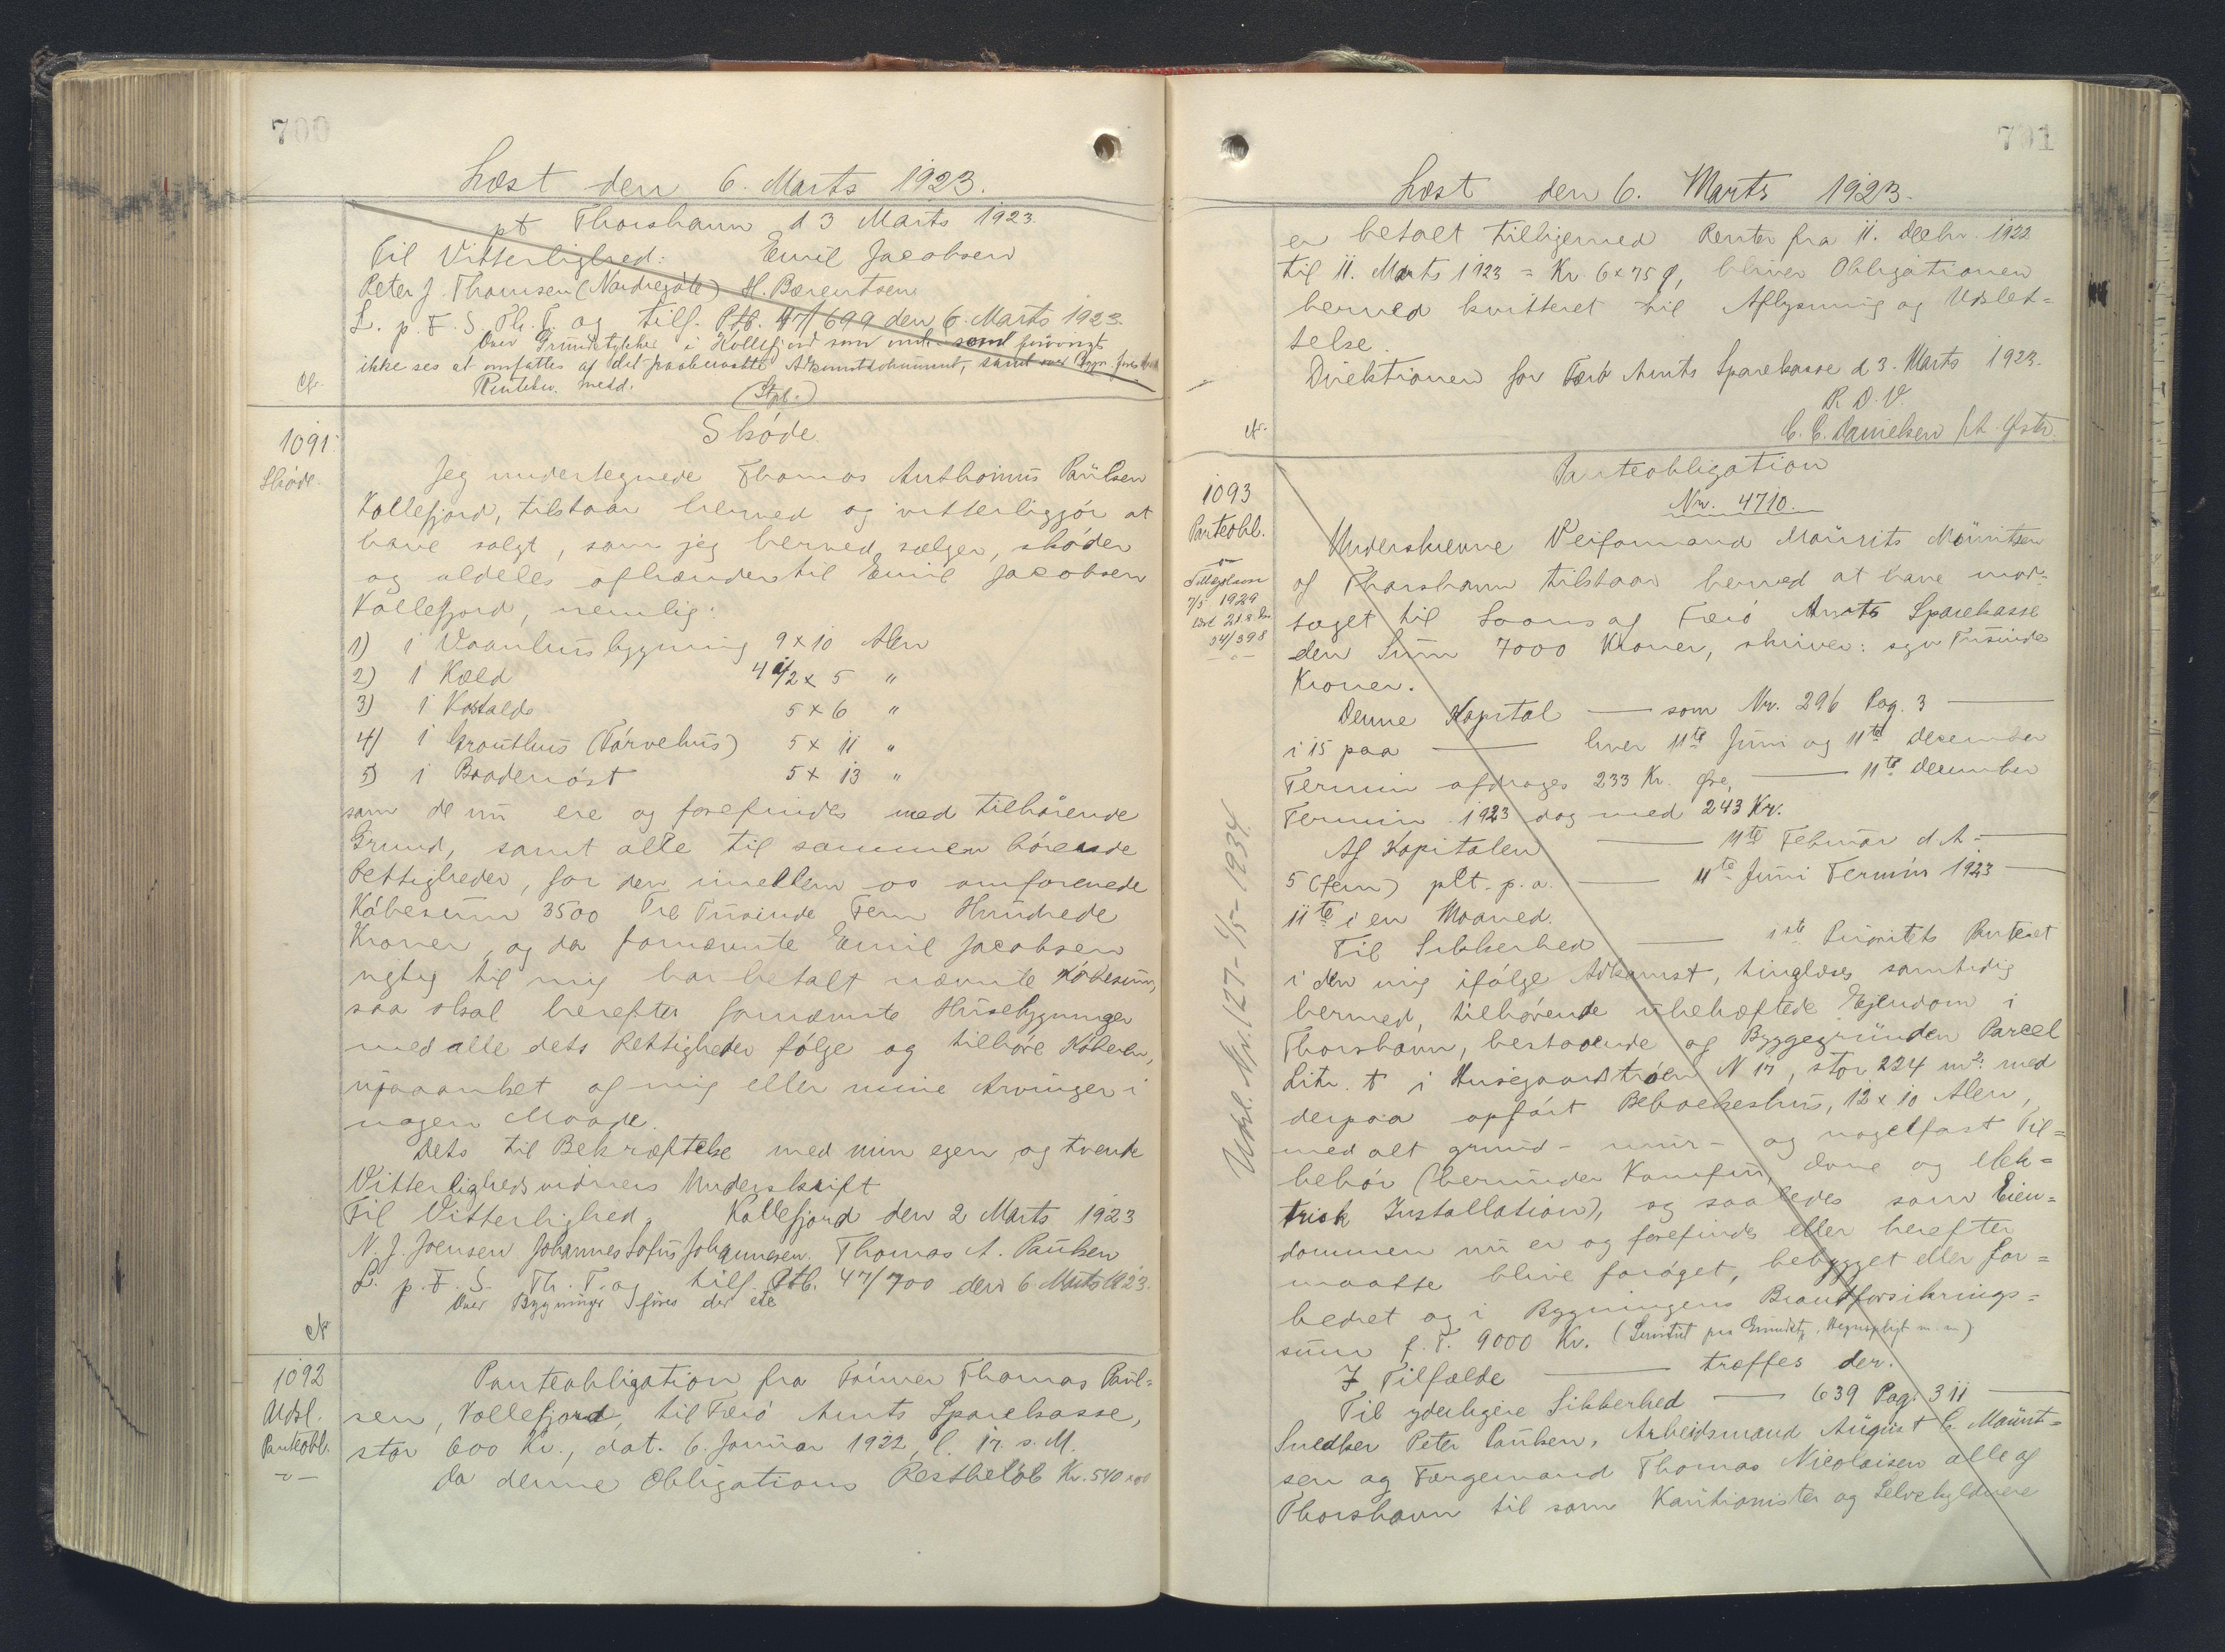 700
Læst den 6. Marts 1923.
pt Thorshavn d 3 Marts 1923.
Til Vitterlighed: Emil Jacobsen
Peter J. Thomsen (Nordregöte) H. Bærentsen
L. p. F. S. Th. T. og tilf. Ptb. 47/699 den 6. Marts 1923.
Over Grundstykker i Kollefjord som
ikke ses at omfattes af det paaberaabte Adkomstdokument, samt
Rentebr. medd.
Cfr.
(Stpl.)
Sköde.
1091.
Sköde.
Jeg undertegnede Thomas Anthonius Paulsen
Kollefjord, tilstaar herved og vitterliggjör at
have solgt, som jeg herved sælger, sköder
og aldeles afhænder til Emil Jacobsen
Kollefjord, nemlig:
1) 1 Vaanhusbygning 9 x 10 Alen
2) 1 Kæld 4 1/2 x 5 "
3) 1 Kostald 5 x 6 "
4) 1 Grouthus (Törvehus) 5 x 11 "
5) 1 Baadenöst 5 x 13 "
som de nu ere og forefindes med tilhörende
Grund, samt alle til sammen hörende
Rettigheder, for den imellem os omforenede
Köbesum 3500 Tre Tusinde Fem Hundrede
Kroner, og da fornævnte Emil Jacobsen
rigtig til mig har betalt nævnte Köbesum,
saa skal herefter fornævnte Husebygninger
med alle dets Rettigheder fölge og tilhöre Köberen,
upaaanket af mig eller mine Arvinger i
nogen Maade.
Dets til Bekræftelse med min egen og tvende
Vitterlighedsvidners Underskrift
Til Vitterlighed. Kollefjord den 2 Marts 1923
N. J. Joensen Johannes Sofus Johannesen. Thomas A. Paulsen
L. p. F. S. Th. T. og tilf. Ptb. 47/700 den 6 Marts 1923.
Over Bygninger föres der ete
1092
Udsl.
Panteobl.
Panteobligation fra Tömrer Thomas Paul-
sen, Kollefjord, til Færö Amts Sparekasse,
stor 600 Kr., dat. 6. Januar 1922, l. 17. s. M.
Da denne Obligations Restbelöb Kr. 540 x 00
701
Læst den 6. Marts 1923.
er betalt tilligemed Renter fra 11. Decbr. 1922
til 11. Marts 1923 = Kr. 6 x 75 ø, bliver Obligationen
herved kvitteret til Aflysning og Udslet-
telse.
Direktionen for Færö Amts Sparekasse d 3. Marts 1923.
P. D. V.
C. C. Danielsen / A. Østr.
Panteobligation
Nr. 4710.
1093
Panteobl.
Tillægslaan
7/5 1929
54/398
Udsl. Nr. 127 - 4/5 - 1934.
Underskrevne Veiformand Mourits Mouritsen
af Thorshavn tilstaar herved at have mod-
taget til Laans af Færö Amts Sparekasse
den Sum 7000 Kroner, skriver: syv Tusinde
Kroner.
Denne Kapital — som Nr. 296 Pag. 3 —
i 15 paa — hver 11te Juni og 11te December
Termin afdrages 233 Kr. Øre, — 11te December
Termin 1923 dog med 243 Kr.
Af Kapitalen — 11te Februar d. A. —
5 (fem) pct. p. a. — 11te Juni Termin 1923 —
11te i en Maaned.
Til Sikkerhed — 1ste Prioritets Panteret
i den mig ifölge Adkomst, tinglæses samtidig
hermed, tilhörende ubehæftede Ejendom i
Thorshavn, bestaaende af Byggegrunden Parcel
Litr. t i Husegaardströen N 17, stor 224 m². med
derpaa opfört Beboelseshus, 12 x 10 Alen,
med alt grund- mur- og nagelfast Til-
behör (herunder Komfur, Ovne og elek-
trisk Installation), og saaledes som Eien-
dommen nu er og forefindes eller herefter
maatte blive foröget, bebygget eller for-
bedret og i Bygningens Brandforsikrings-
sum f. T. 9000 Kr. (Servitut paa Grundst., Hegnspligt m. m.)
I Tilfælde — træffes der.
Til yderligere Sikkerhed — 639 Pag. 311 —
Snedker Peter Paulsen, Arbeidsmand August C. Mourit-
sen og Færgemand Thomas Nicolaisen alle af
Thorshavn til som Kautionister og Selvskyldnere